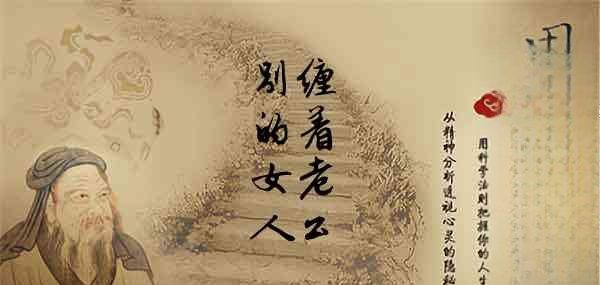 用科学法则把握你的人生
从精神分析透视心灵的隐秘
缠着老公
别的女人